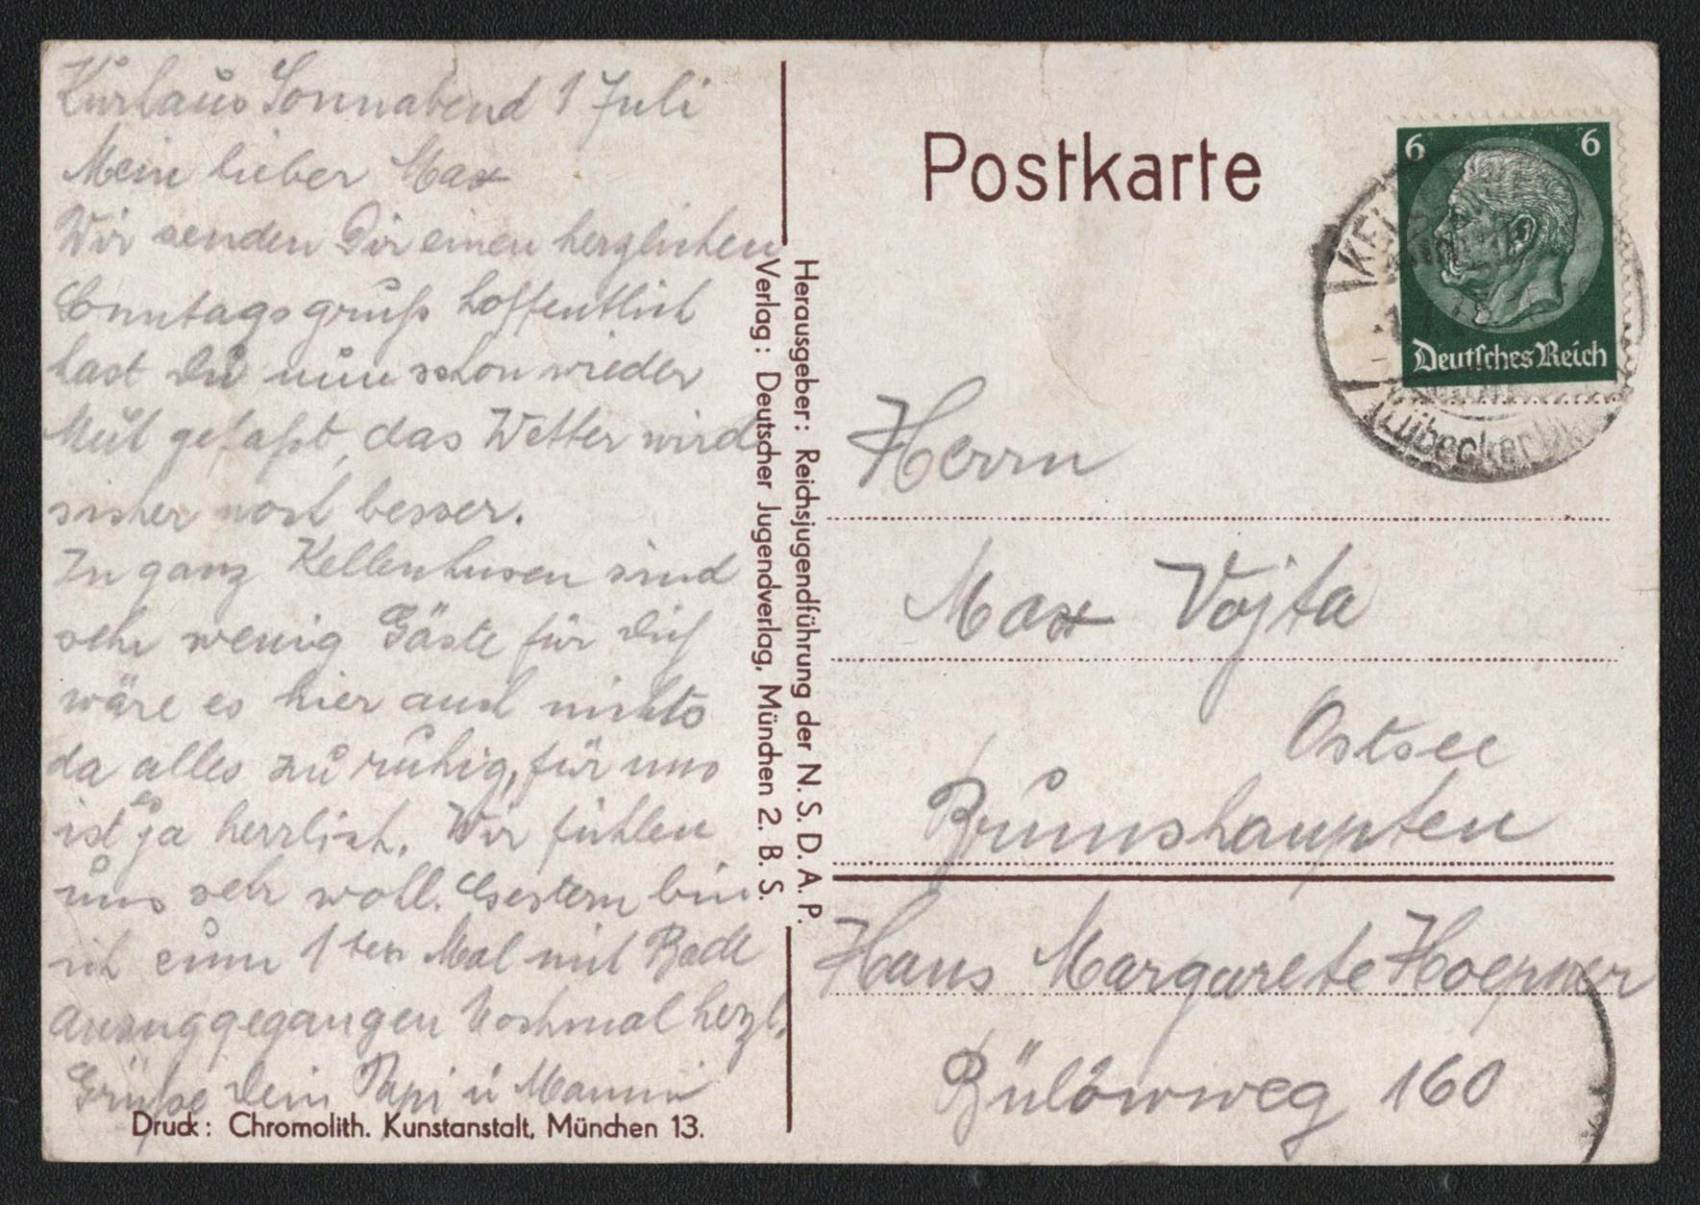 Kurhaus Sonnabend 1 Juli
Mein lieber Max
Wir senden Dir einen herzlichen
Sonntagsgruß hoffentlich
hast Du nun schon wieder
Mut gefaßt, das Wetter wird
sicher noch besser.
In ganz Kellenhusen sind
sehr wenig Gäste für Dich
wäre es hier auch nichts
da alles zu ruhig, für uns
ist es ja herrlich. Wir fühlen
uns sehr wohl. Gestern bin
ich zum 1ten Mal mit Bade
anzug gegangen Nochmal herzl.
Grüße Dein Papi u Mammi
Druck: Chromolith. Kunstanstalt, München 13.
Herausgeber: Reichsjugendführung der N.S.D.A.P.
Verlag: Deutscher Jugendverlag, München 2. B. S.
Postkarte
6 6
Deutsches Reich
Lübecker
Herrn
Max Vojta
Ostsee
Brunshaupten
Haus Margarete Hoepner
Bülowweg 160